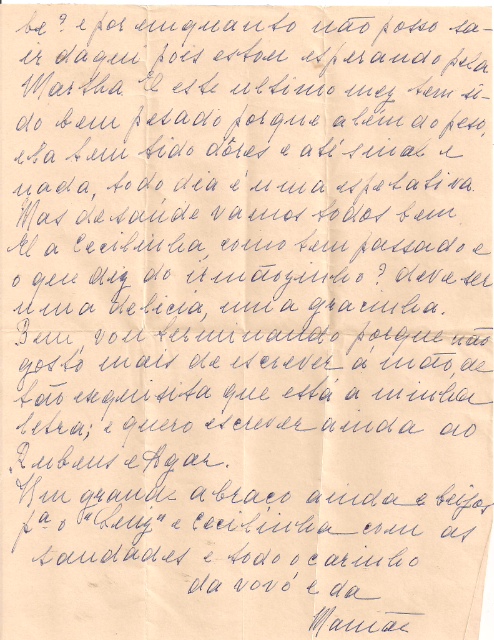 be? e por enquanto não posso sa-
ir daqui pois estou esperando pela
Martha. E este ultimo mez tem si-
do bem pesado porque além do peso,
ela tem tido dôres e até sinal e
nada, todo dia é uma espetativa.
Mas de saúde vamos todos bem.
E a Cecilinha como tem passado e
o que diz do irmãozinho? deve ser
uma delicia, uma gracinha.
Bem, vou terminando porque não
gosto mais de escrever á mão, de
tão esquisita que está a minha
letra; e quero escrever ainda ao
Rubens e Agar.
Um grande abraço ainda e beijos
pª o "Beny" e Cecilinha com as
saudades e todo o carinho
da vovó e da
Mamãe